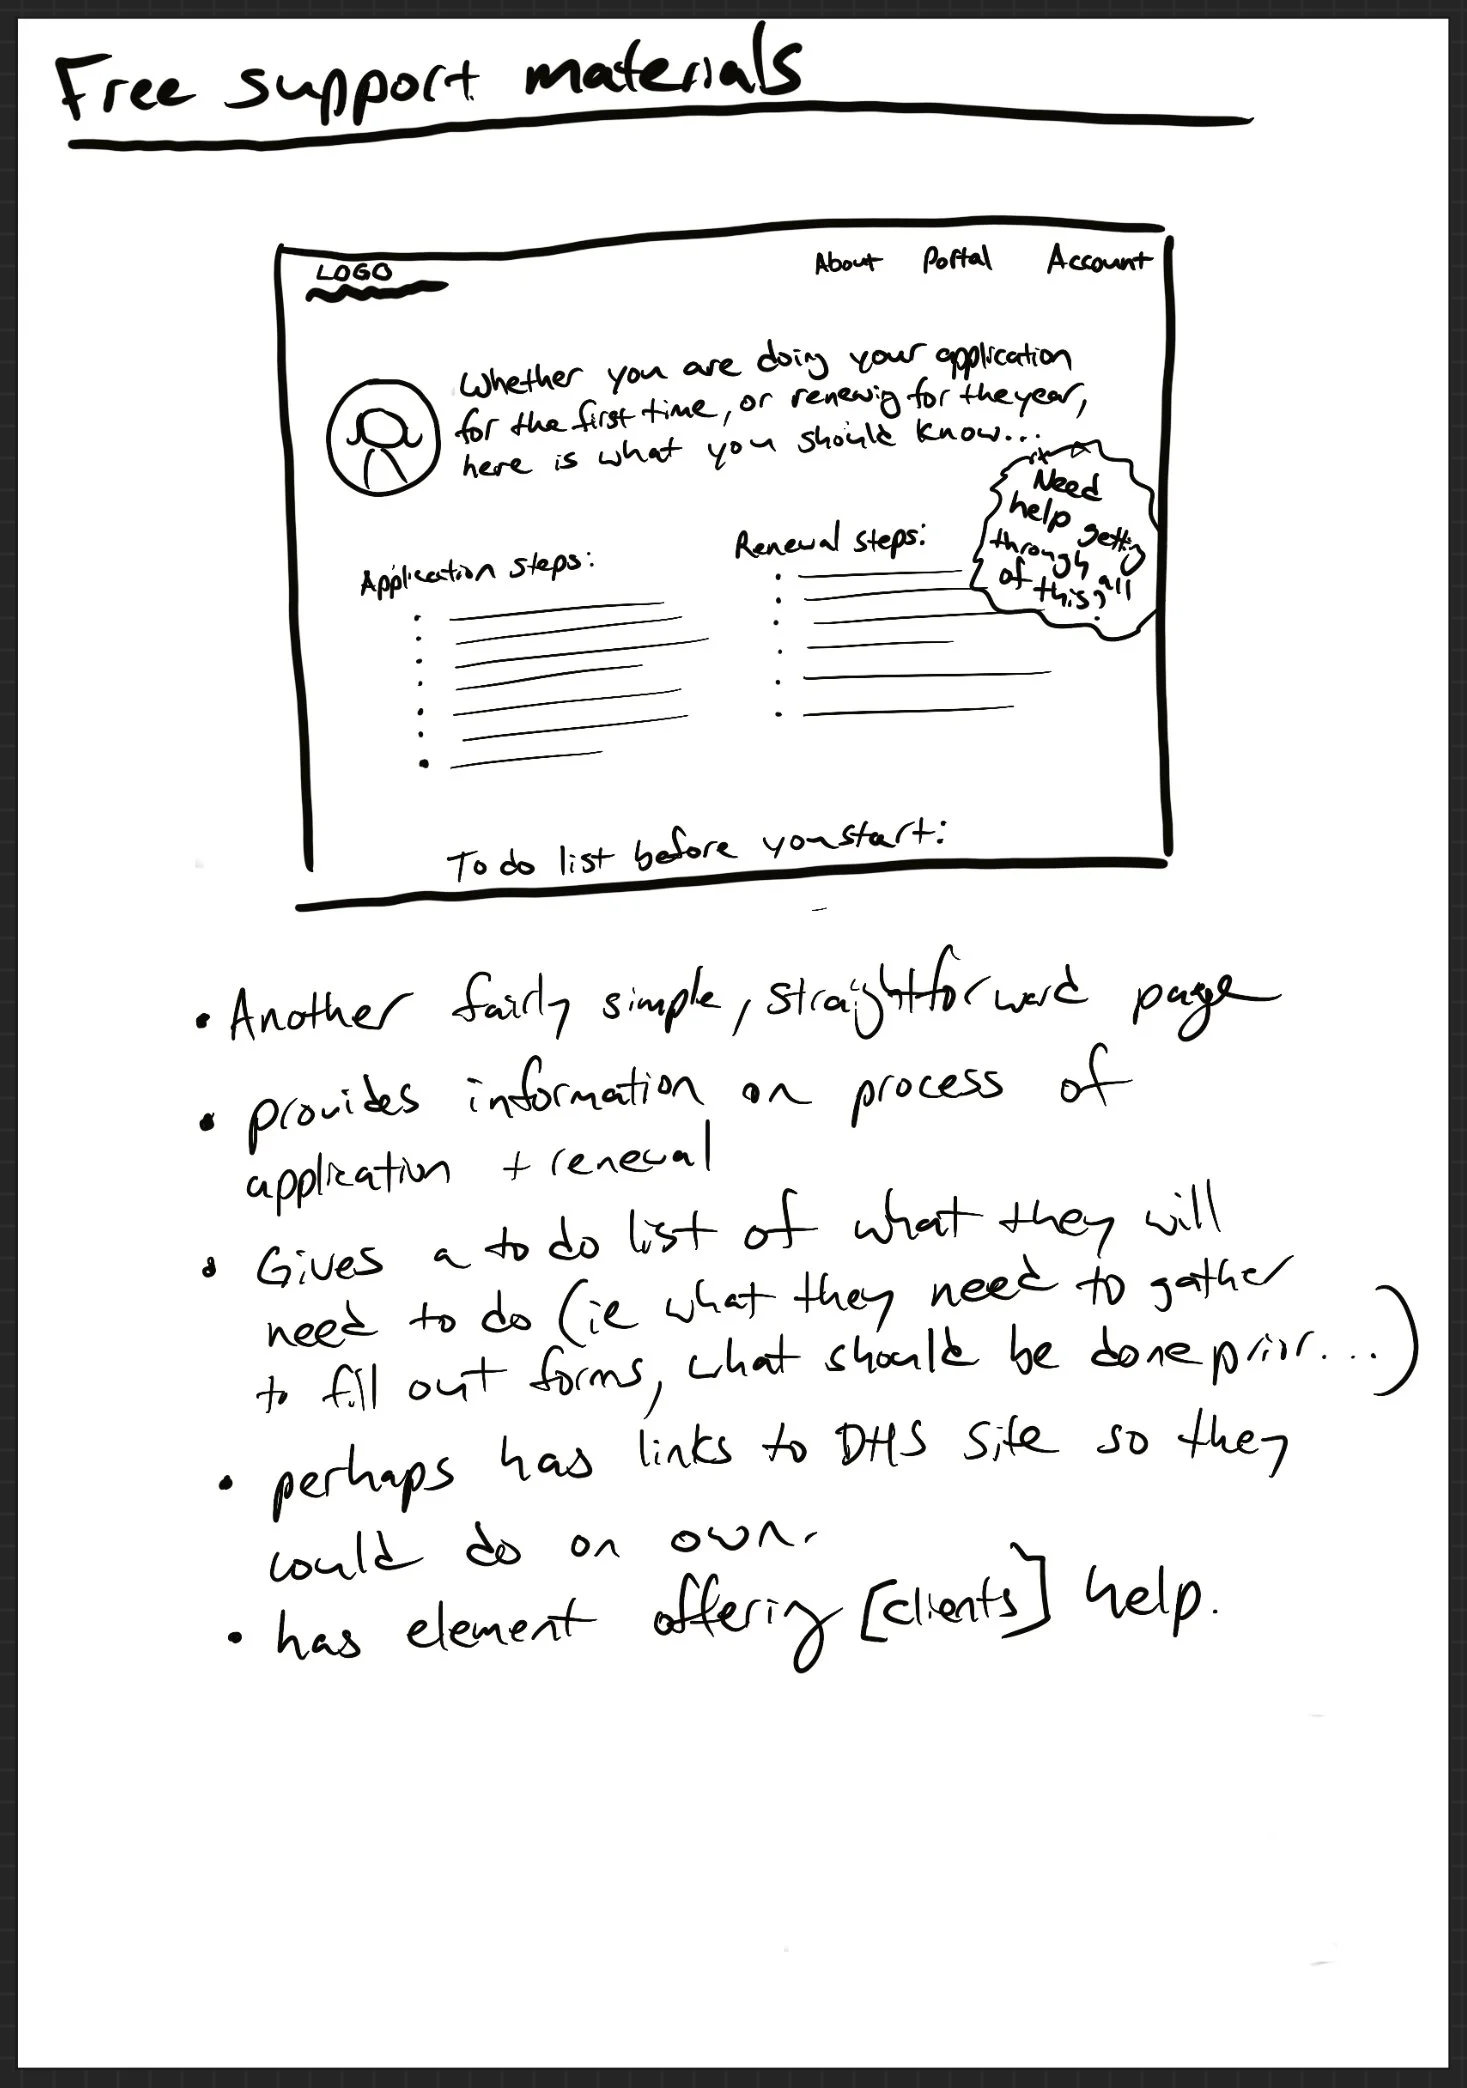 Free support materials
LOGO
About Portal Account
Whether you are doing your application
for the first time, or renewig for the year,
here is what you should know...
Need
help gettig
through all
of this?
Application steps:
Renewal steps:
To do list before you start:
• Another fairly simple, straightforward page
• provides information on process of
application + renewal
• Gives a to do list of what they will
need to do (ie what they need to gather
to fill out forms, what should be done prior...)
• perhaps has links to DHS site so they
could do on own.
• has element offering [clients] help.